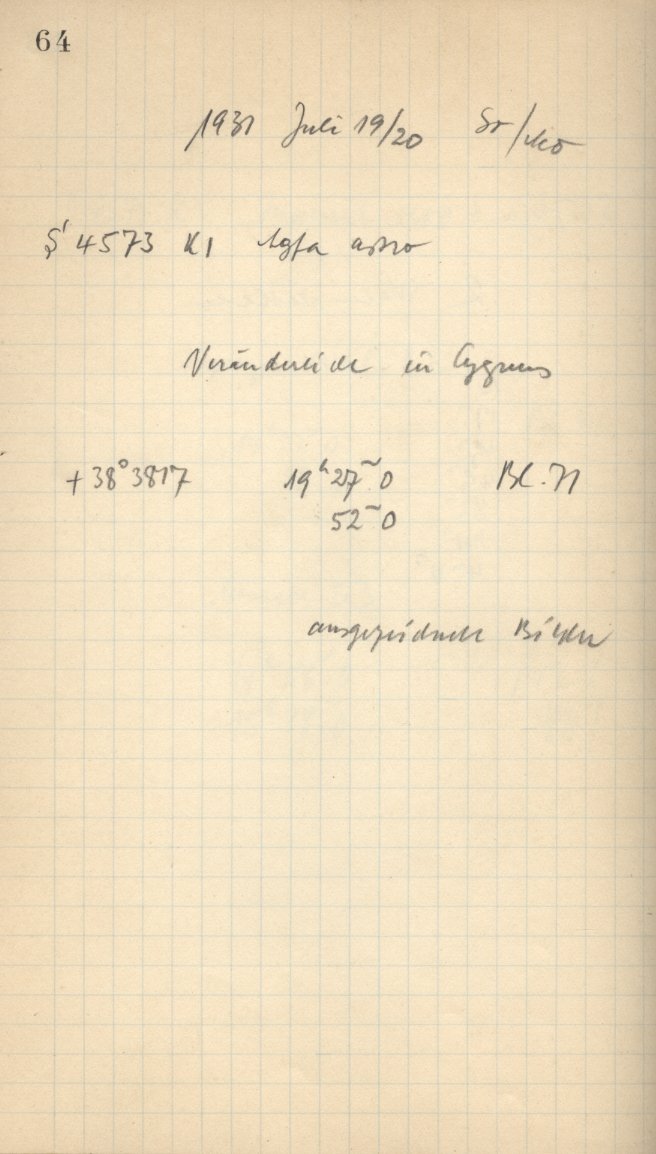 64
1931 Juli 19/20 Sr/
S' 4573 K1 Agfa astro
Veränderliche in Cygnus
+38° 3817 19ʰ 27ᵐ 0 Bl. 71
52ᵐ 0
ausgezeichnete Bilder